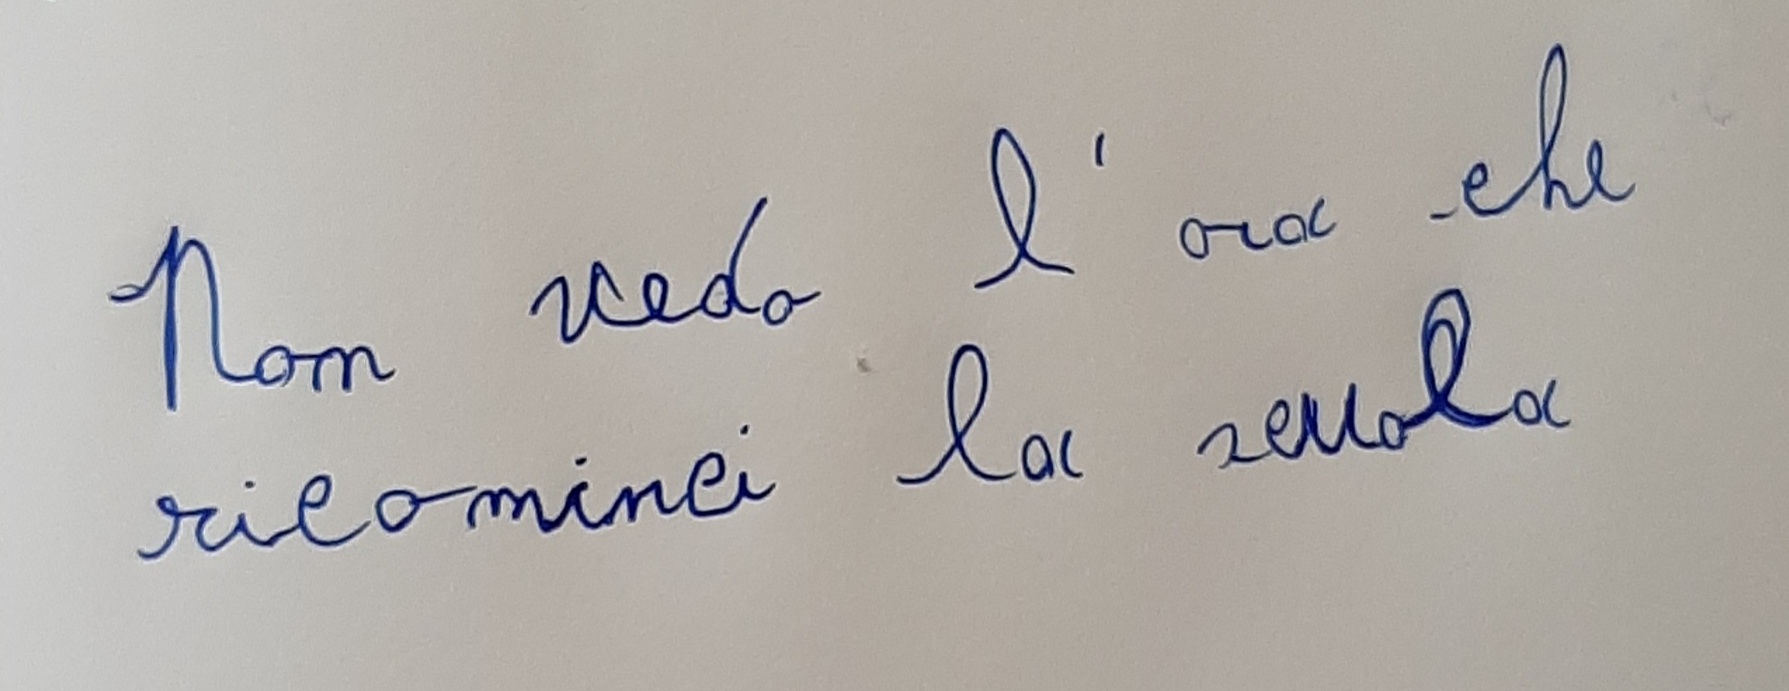 Non vedo l'ora che
ricominci la scuola